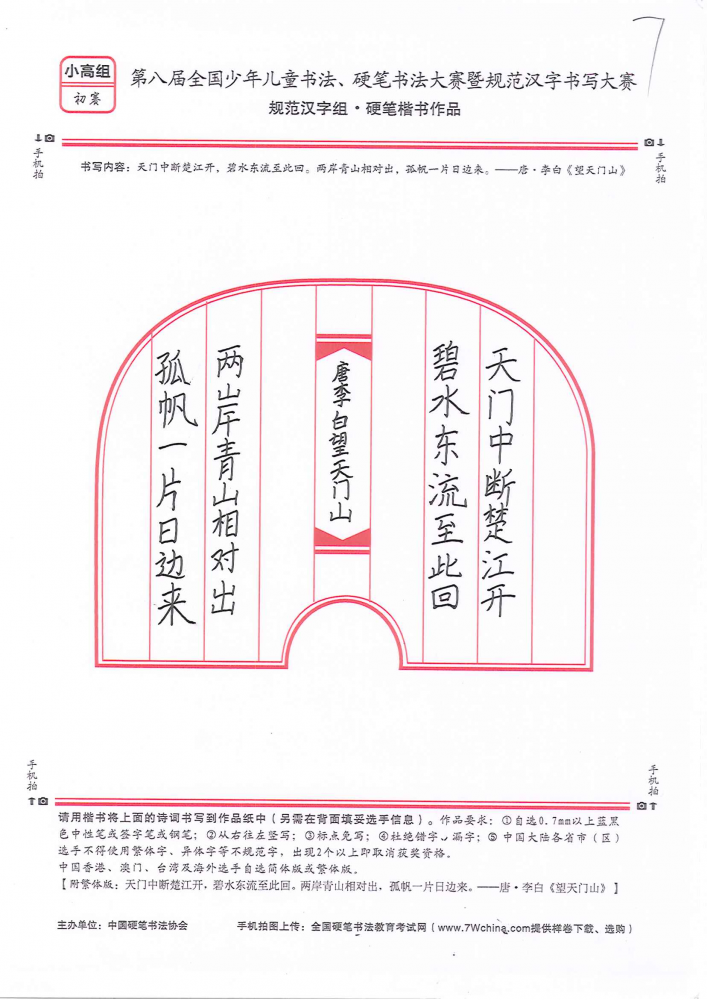 7
小高组
初赛
第八届全国少年儿童书法、硬笔书法大赛暨规范汉字书写大赛
规范汉字组·硬笔楷书作品
手机拍
手机拍
书写内容：天门中断楚江开，碧水东流至此回。两岸青山相对出，孤帆一片日边来。——唐·李白《望天门山》
天门中断楚江开
碧水东流至此回
唐李白望天门山
两岸青山相对出
孤帆一片日边来
手机拍
手机拍
请用楷书将上面的诗词书写到作品纸中（另需在背面填妥选手信息）。作品要求：①自选0.7mm以上蓝黑
色中性笔或签字笔或钢笔；②从右往左竖写；③标点免写；④杜绝错字、漏字；⑤中国大陆各省市（区）
选手不得使用繁体字、异体字等不规范字，出现2个以上即取消获奖资格。
中国香港、澳门、台湾及海外选手自选简体版或繁体版。
【附繁体版：天门中断楚江开，碧水东流至此回。两岸青山相对出，孤帆一片日边来。——唐·李白《望天门山》】
主办单位：中国硬笔书法协会
手机拍图上传：全国硬笔书法教育考试网（www.7Wchina.com提供样卷下载、选购）